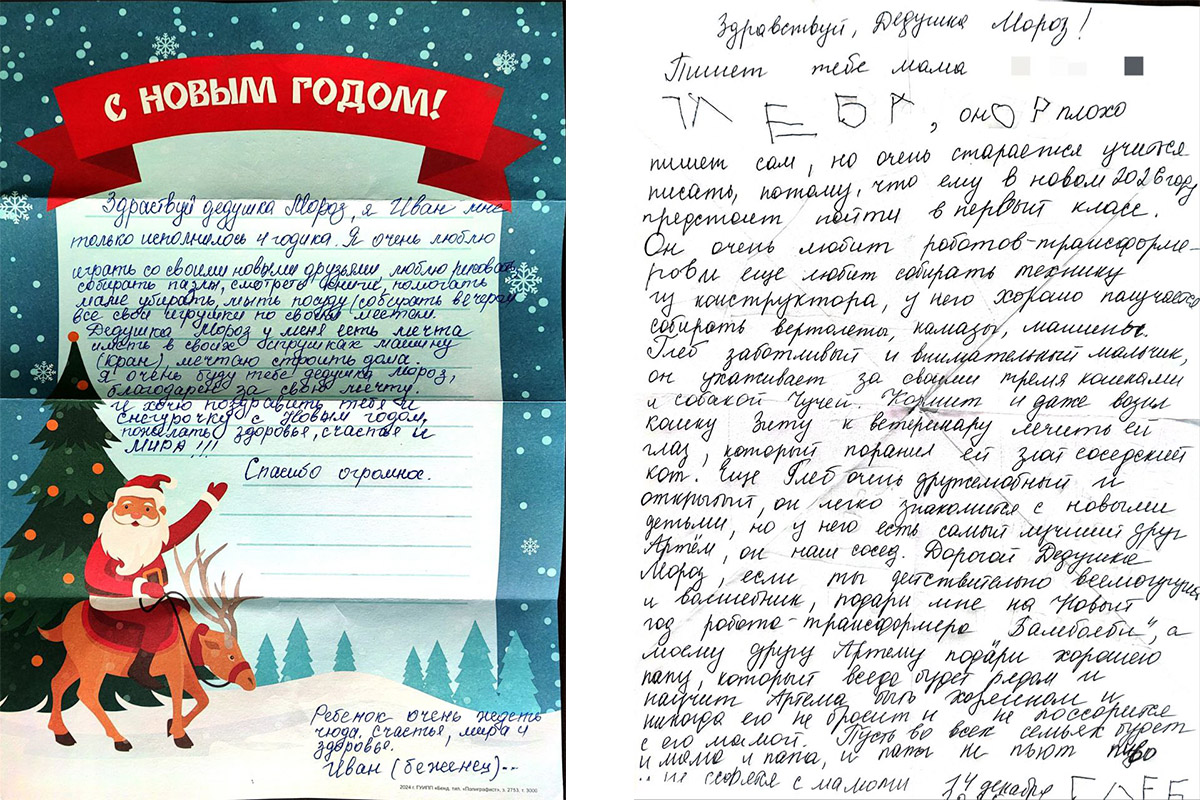 С НОВЫМ ГОДОМ!
Здраствуй дедушка Мороз, я Иван мне
только исполнилось 4 годика. Я очень люблю
играть со своими новыми друзьями, люблю рисовать
собирать пазлы, смотреть, помогать
маме убирать, мыть посуду, собирать вечером
все свои игрушки по своим местам.
Дедушка Мороз у меня есть мечта
иметь в своих игрушках машину
(кран), мечтаю строить дома.
Я очень буду тебе дедушка Мороз,
благодарен за свою мечту.
И хочу поздравить тебя и
Снегурочку с Новым годом,
пожелать здоровье, счастья и
МИРА!!!
Спасибо огромное.
Ребенок очень ждеть
чюда. счастье, мира и
здоровье.
Иван (беженец)..
2024 г. ГУИПП «Бенд. тип. «Полиграфист», з. 2753, т. 3000
Здравствуй, Дедушка Мороз!
Пишет тебе мама
ГЛЕБА, он плохо
пишет сам, но очень старается учится
писать, потому, что ему в новом 2026 год
предстоит пойти в первый класс.
Он очень любит роботов-трансформе-
ров и еще любит собирать технику
из конструктора, у него хорошо получается
собирать вертолеты, камазы, машины.
Глеб заботливый и внимательный мальчик,
он ухаживает за своими тремя кошками
и собакой Чучей. Кормит и даже возил
кошку Зиту к ветеринару лечить ей
глаз, который поранил ей злой соседский
кот. Еще Глеб очень дружелюбный и
открытый, он легко знакомится с новыми
детьми, но у него есть самый лучший друг
Артём, он наш сосед. Дорогой Дедушка
Мороз, если ты действительно всемогущий
и волшебник, подари мне на Новый
год робота-трансформера Бамбоеби", а
моему другу Артему подари хорошего
папу, который всегда будет рядом и
научит Артема быть хорошим и
никогда его не бросит и не поссорится
с его мамой. Пусть во всех семьях будет
и мама и папа, и папы не пьют пиво
не ссорятся с мамами 14 декабря
ГЛЕБ